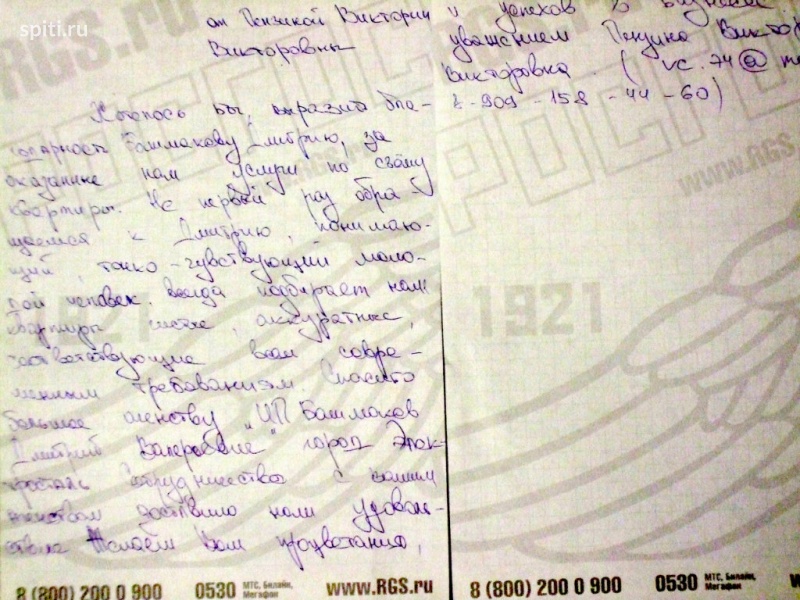 spiti.ru
www.RGS.ru
от Викторин
Викторовны
Хотелось бы, выразить бла-
годарность Башмакову Дмитрию, за
оказанные нам услуги по съёму
квартиры. Не первый раз обра-
щаемся к Дмитрию, понимаю-
щий, тонко-чувствующий моло-
дой человек. Всегда подбирает нам
квартиры чистые, аккуратные,
соответствующие всем совре-
менным требованиям. Спасибо
большое агенству „ИП Башмаков
Дмитрий Валерьевич" город Элек-
тросталь Сотрудничество с вашим
агенством доставило нам удоволь-
ствие Желаем Вам процветания,
1921
8 (800) 200 0 900 0530 МТС, Билайн, Мегафон www.RGS.ru
и успехов в бизнесе
уважением Виктор
Викторовна. (vc.74@
8-909-158-44-60)
РОСГОС
www.RGS
1921
8 (800) 200 0 900 0530 МТС, Билайн, Мегафон